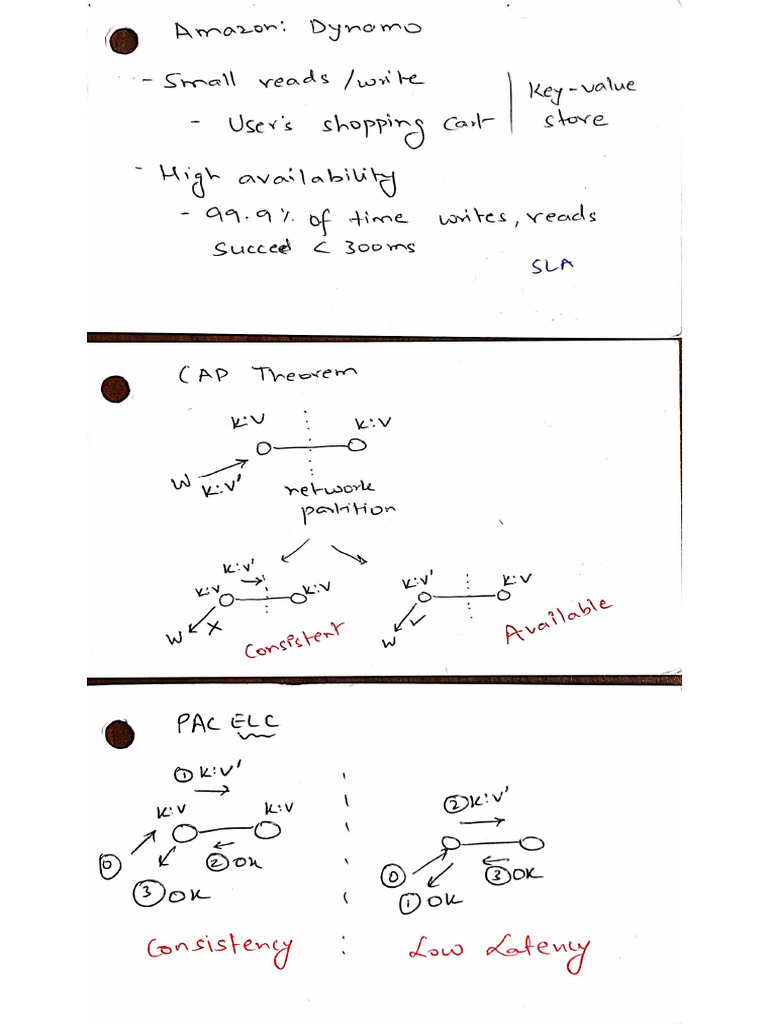 Amazon: Dynamo
- Small reads/write
- User's shopping cart
Key-value
store
- High availability
- 99.9% of time writes, reads
succeed < 300ms
SLA
CAP Theorem
K:V K:V
W K:V'
network
partition
K:V'
K:V K:V
W X
Consistent
K:V' K:V
W ✓
Available
PACELC
① K:V'
K:V K:V
⓪
② OK
③ OK
Consistency
② K:V'
⓪
③ OK
① OK
Low Latency